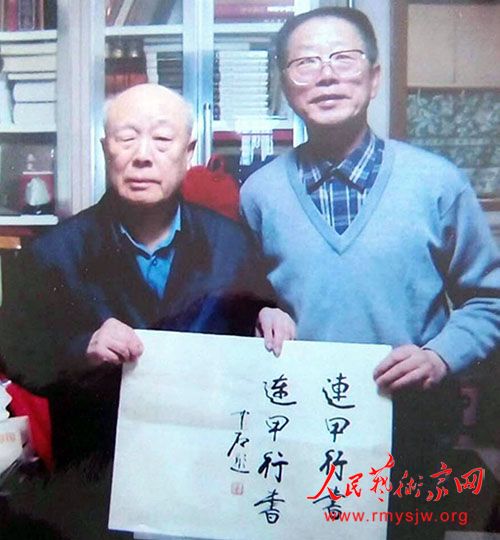 連甲行書
連甲行書
中石题
人民藝術家网
www.rmysjw.org